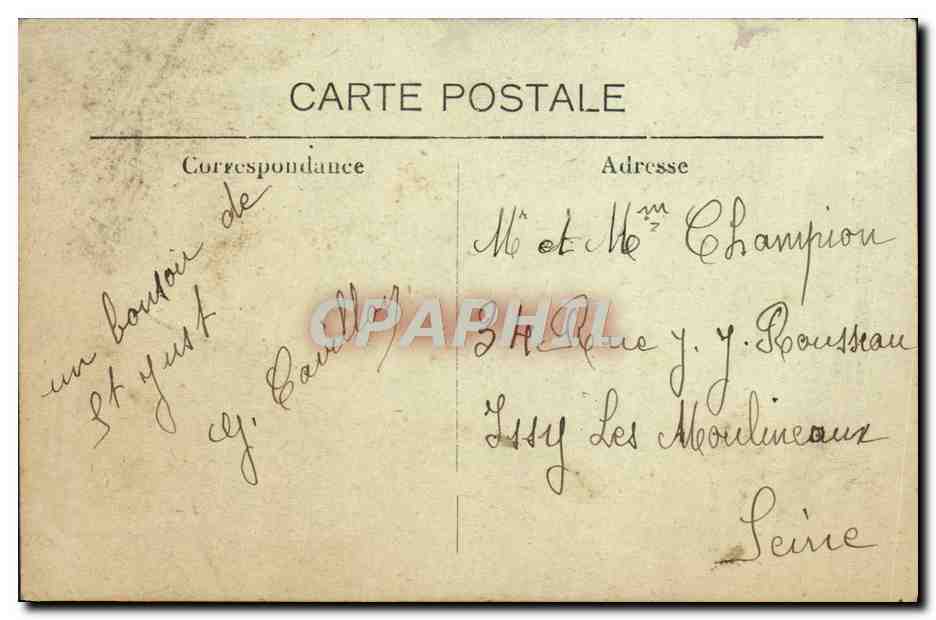 CARTE POSTALE
Correspondance
un bonsoir de
St Just
Adresse
Mr et Mme Champion
34 Rue J. J. Rousseau
Issy Les Moulineaux
Seine
CPAPHIL